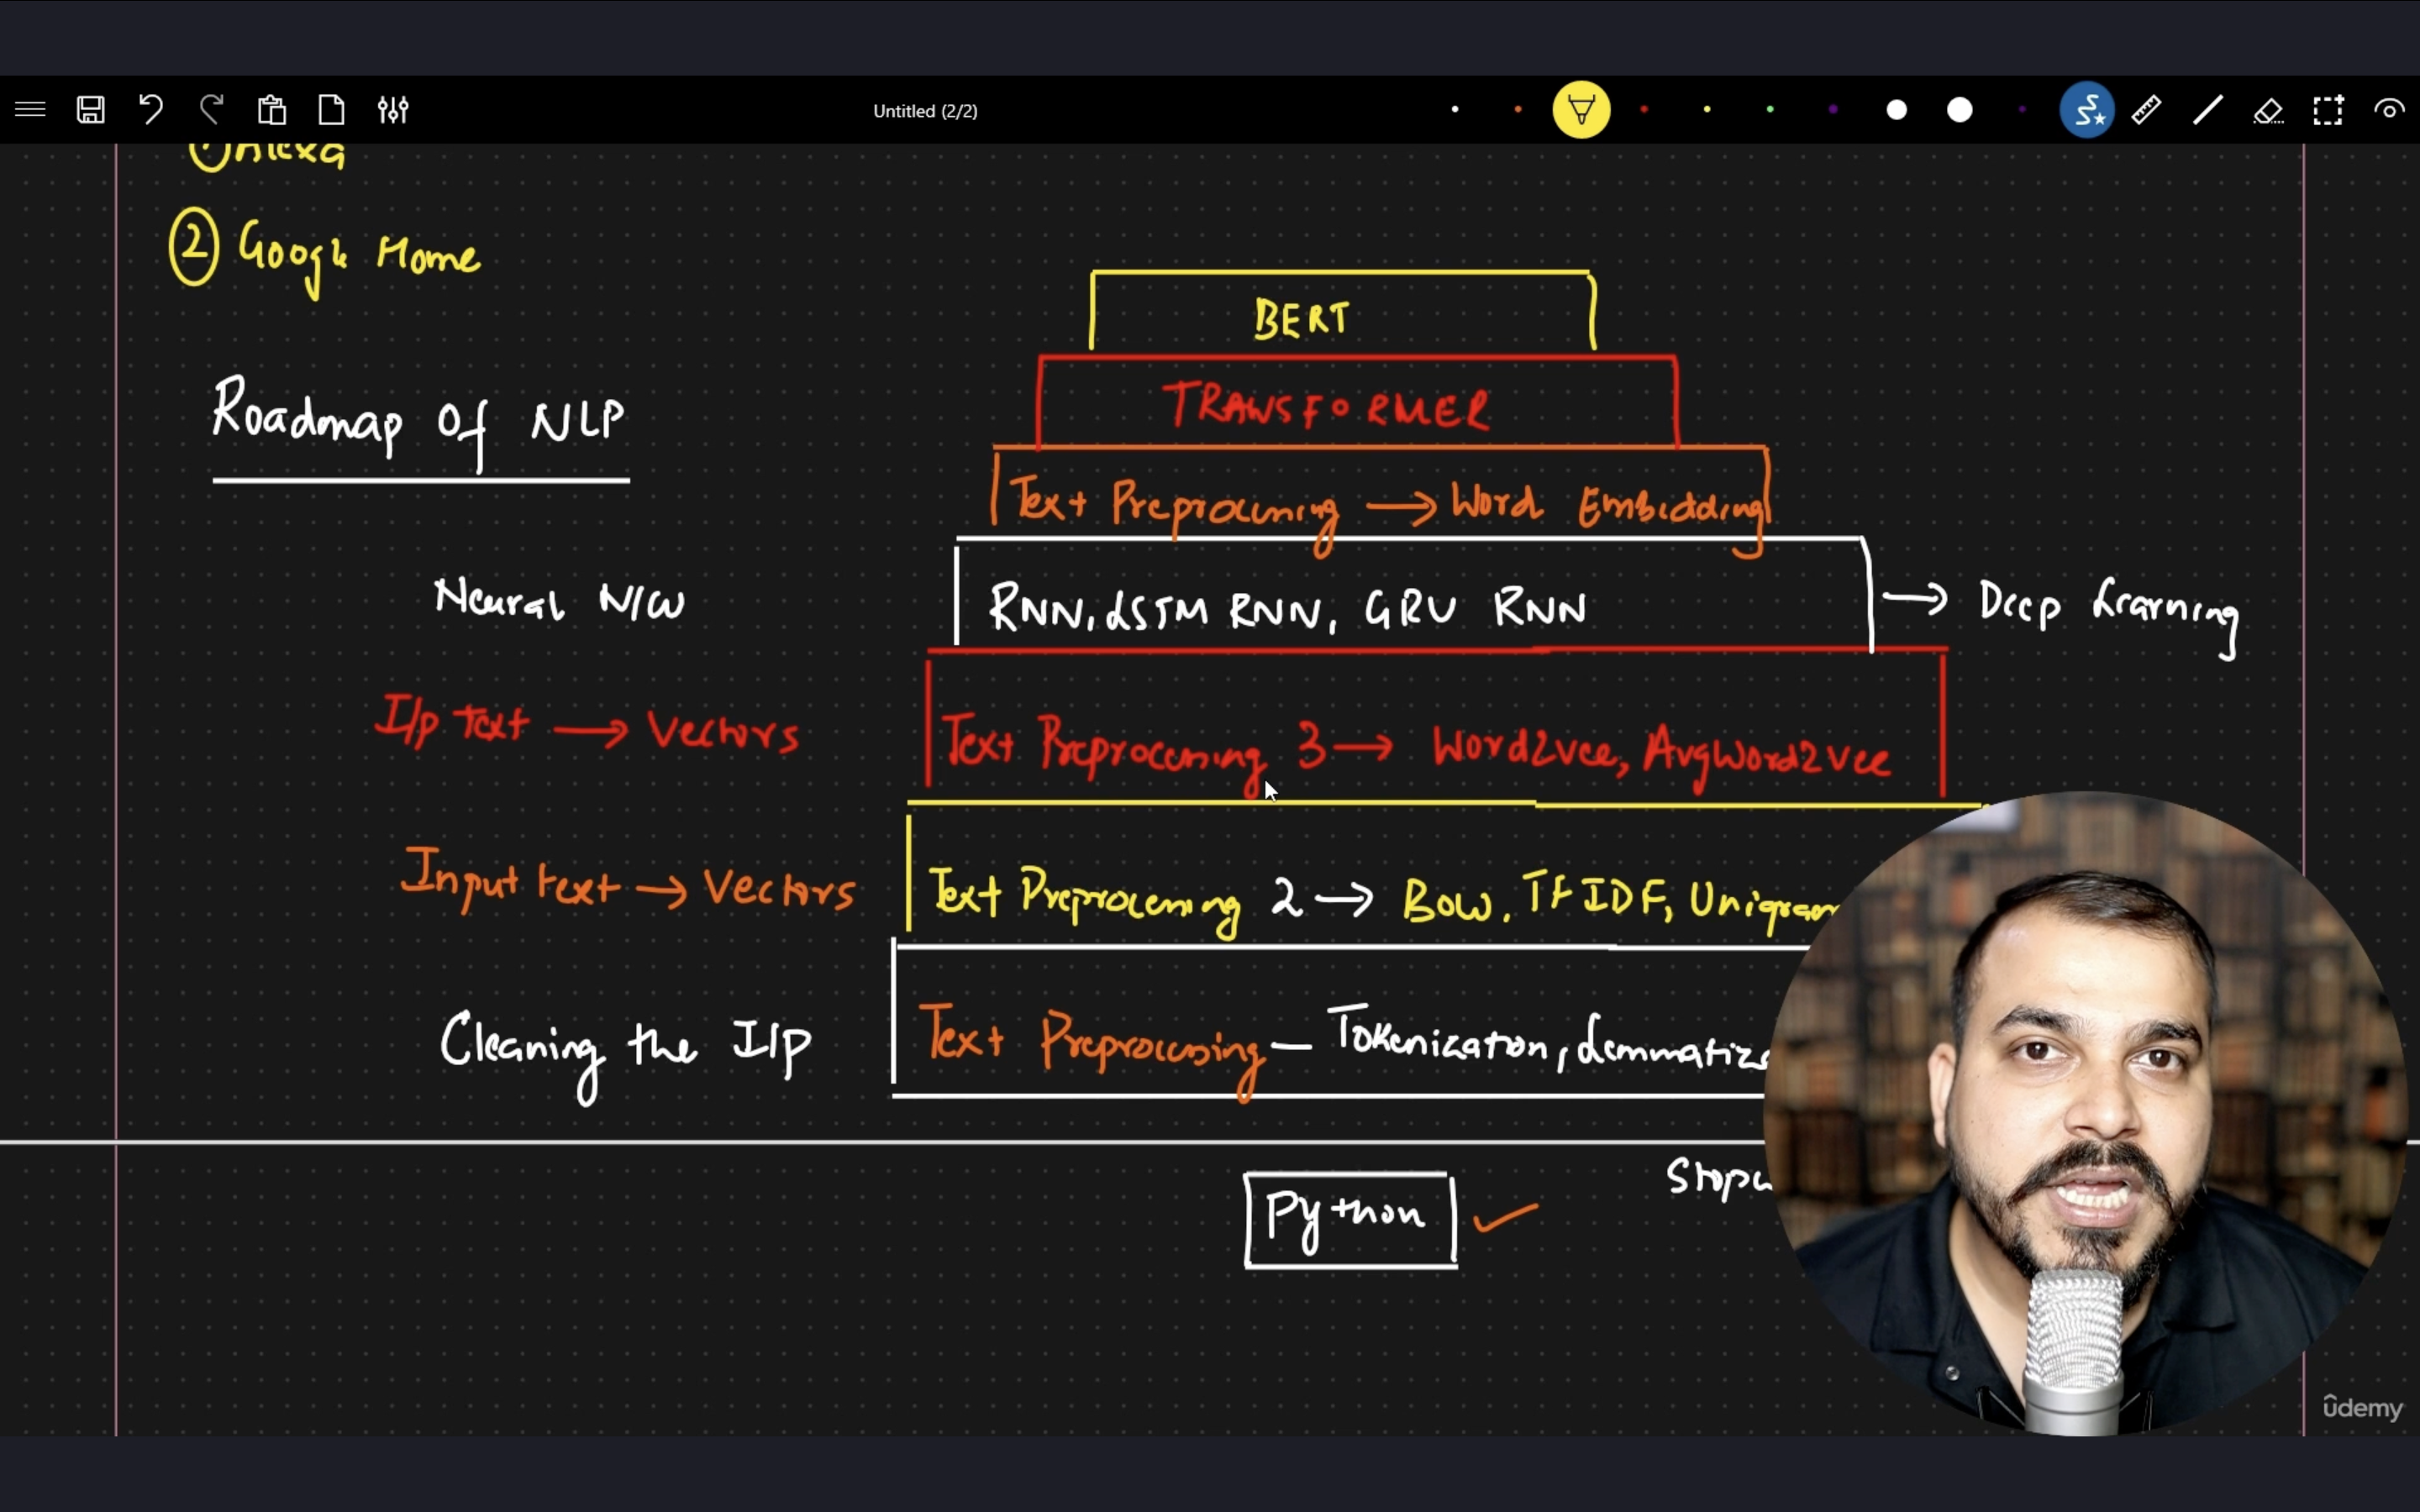 Untitled (2/2)
① Alexa
② Google Home
BERT
Roadmap Of NLP
TRANSFORMER
Text Preprocessing → Word Embedding
Neural N/W
RNN, LSTM RNN, GRU RNN → Deep Learning
I/p Text → Vectors
Text Preprocessing 3 → Word2vec, AvgWord2vec
Input text → Vectors
Text Preprocessing 2 → BOW, TFIDF, Unigram
Cleaning the I/p
Text Preprocessing — Tokenization, Lemmatiz
Stop
Python ✓
ûdemy